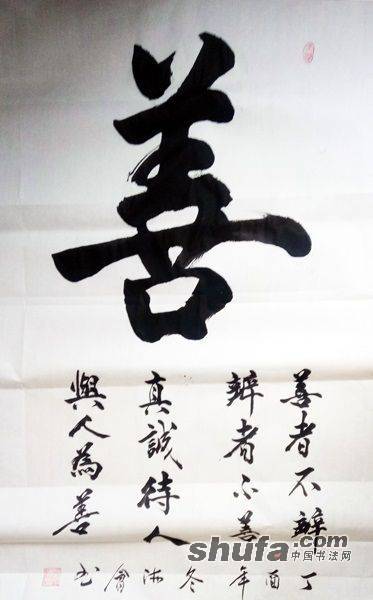 善
善者不辯
辯者不善
真誠待人
與人為善
丁酉年冬 會书
shufa.com
中国书法网